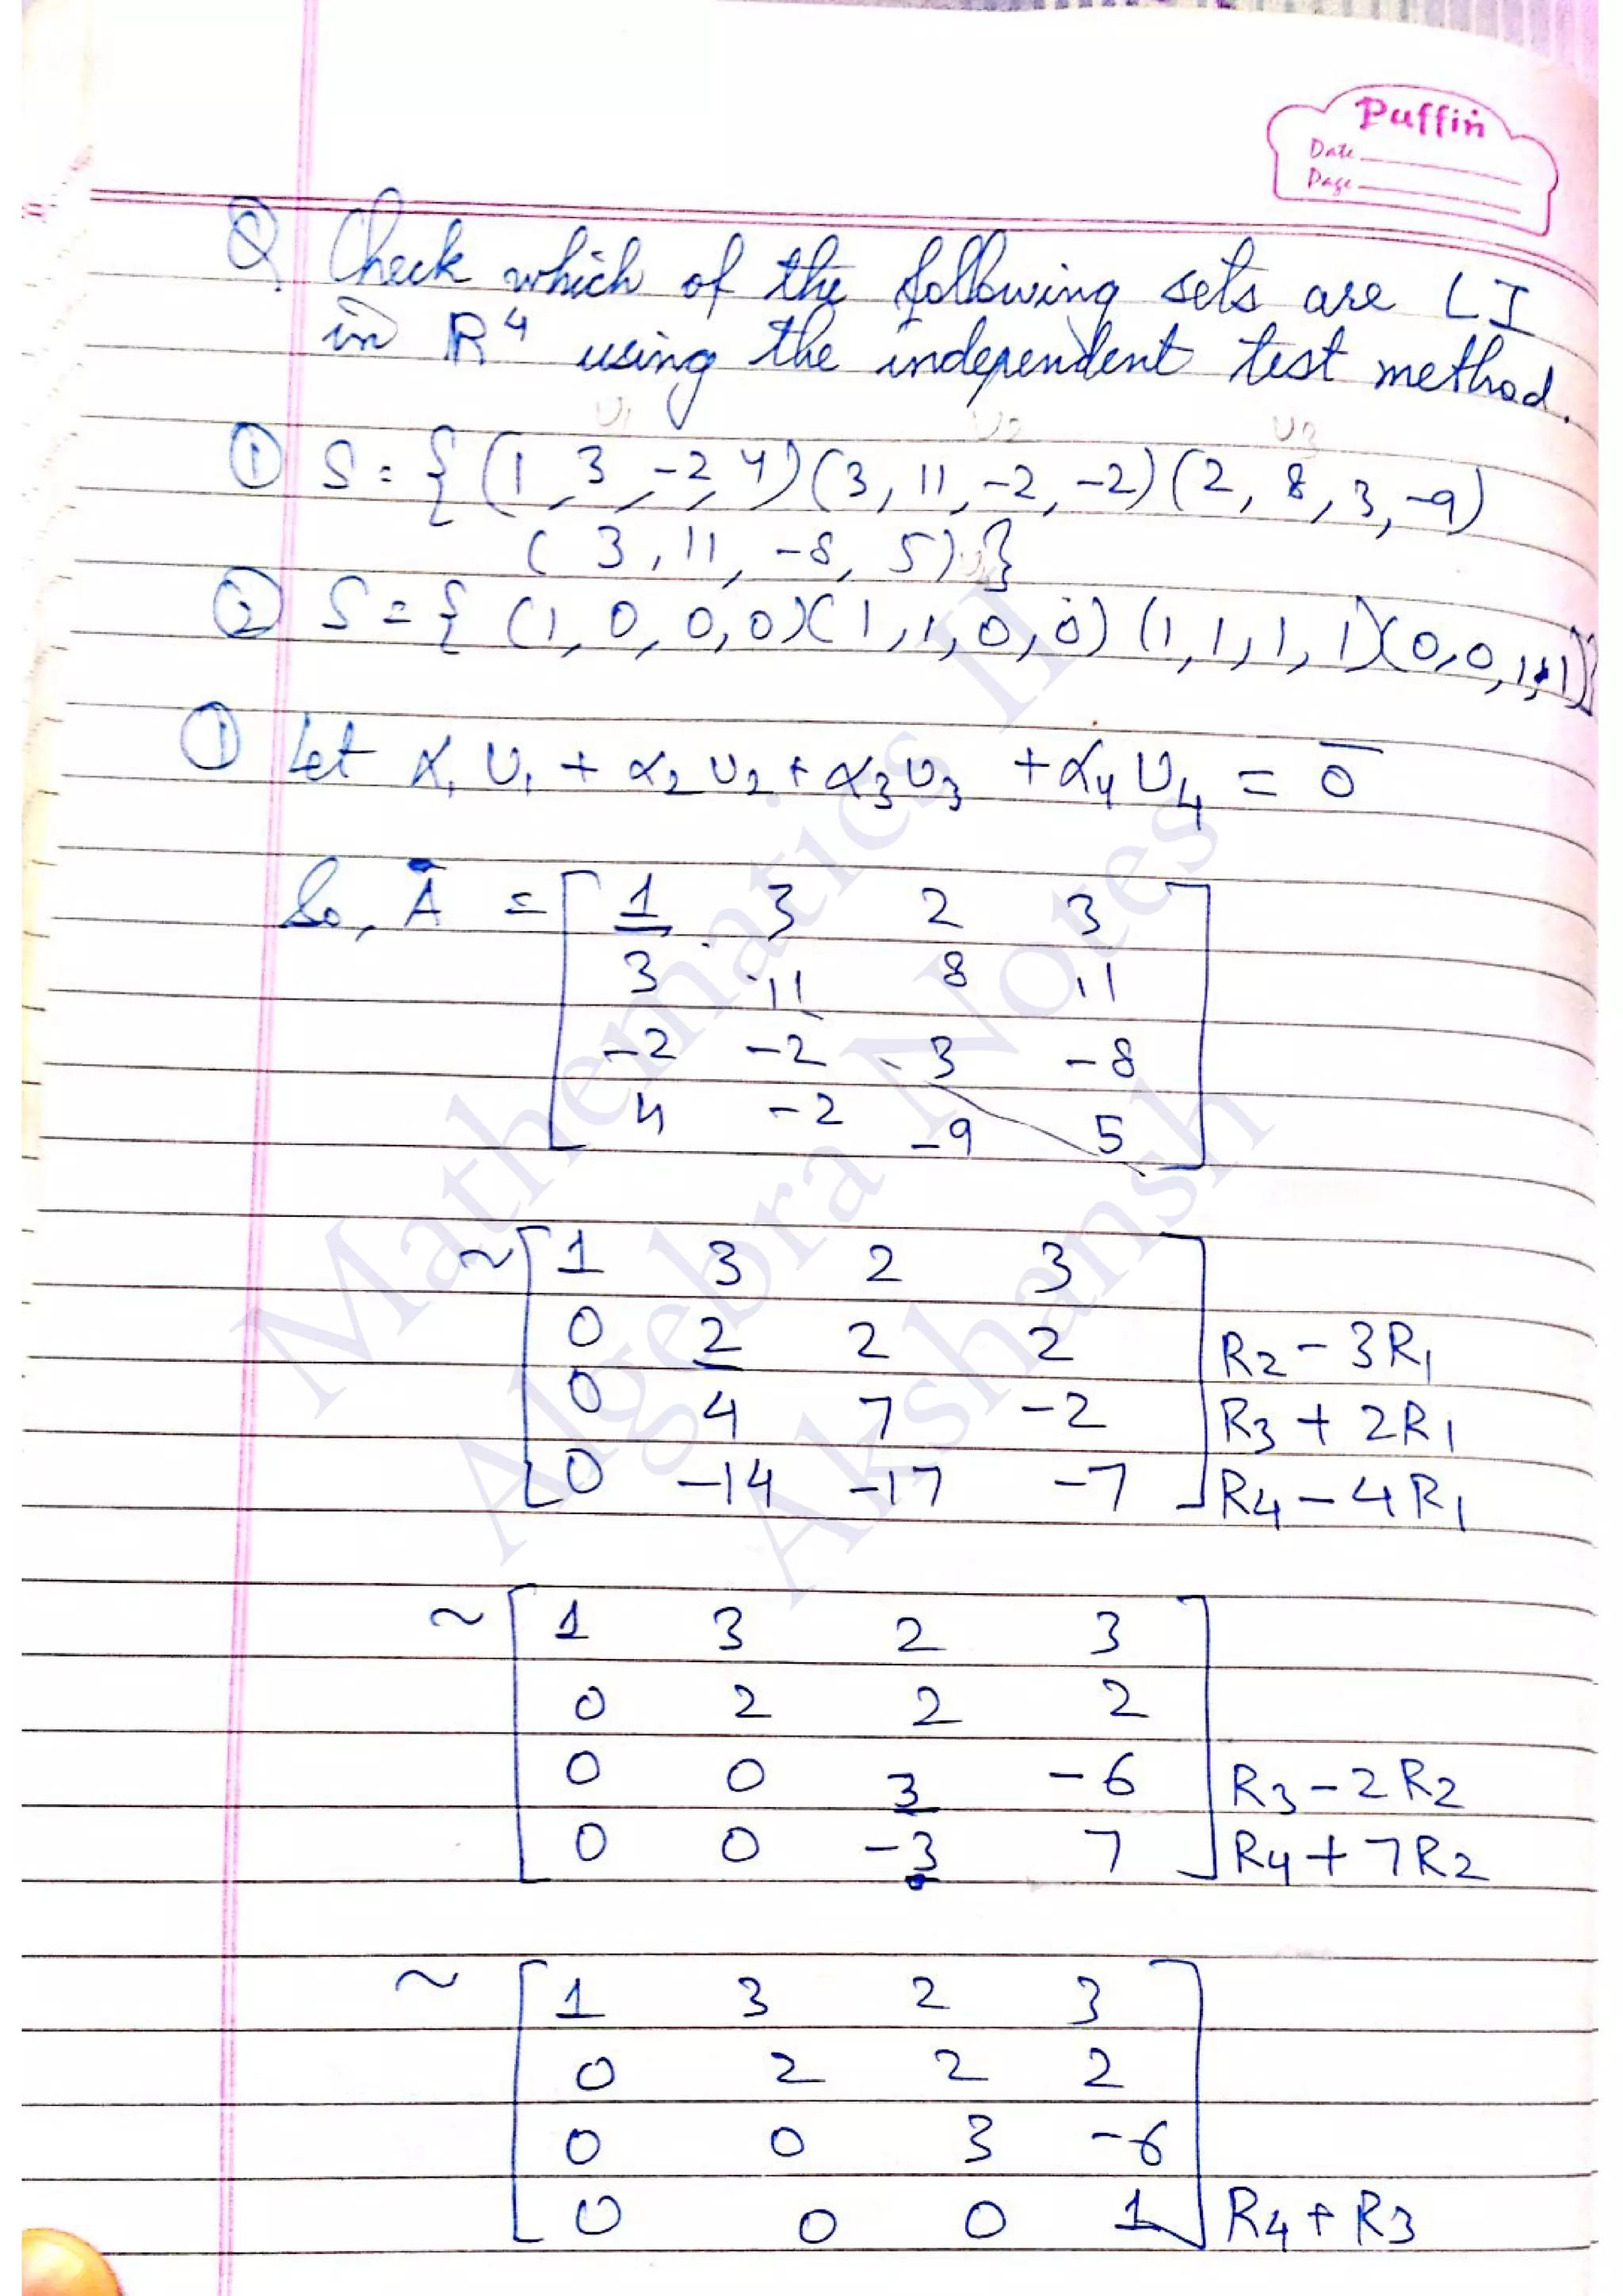 Puffin
Date
Page
Q. Check which of the following sets are LI
in R⁴ using the independent test method.
U₁ U₂ U₃
① S = { (1, 3, -2, 4) (3, 11, -2, -2) (2, 8, 3, -9)
( 3, 11, -8, 5) }
② S = { (1, 0, 0, 0) (1, 1, 0, 0) (1, 1, 1, 1) (0, 0, 1, 1) }
① Let α₁ U₁ + α₂ U₂ + α₃ U₃ + α₄ U₄ = 0̅
So, A = [ 1 3 2 3
3 11 8 11
-2 -2 3 -8
4 -2 -9 5 ]
~ [ 1 3 2 3
0 2 2 2 R₂ - 3R₁
0 4 7 -2 R₃ + 2R₁
0 -14 -17 -7 ] R₄ - 4R₁
~ [ 1 3 2 3
0 2 2 2
0 0 3 -6 R₃ - 2R₂
0 0 -3 7 ] R₄ + 7R₂
~ [ 1 3 2 3
0 2 2 2
0 0 3 -6
0 0 0 1 ] R₄ + R₃
Mathematics II
Algebra Notes
Akshansh